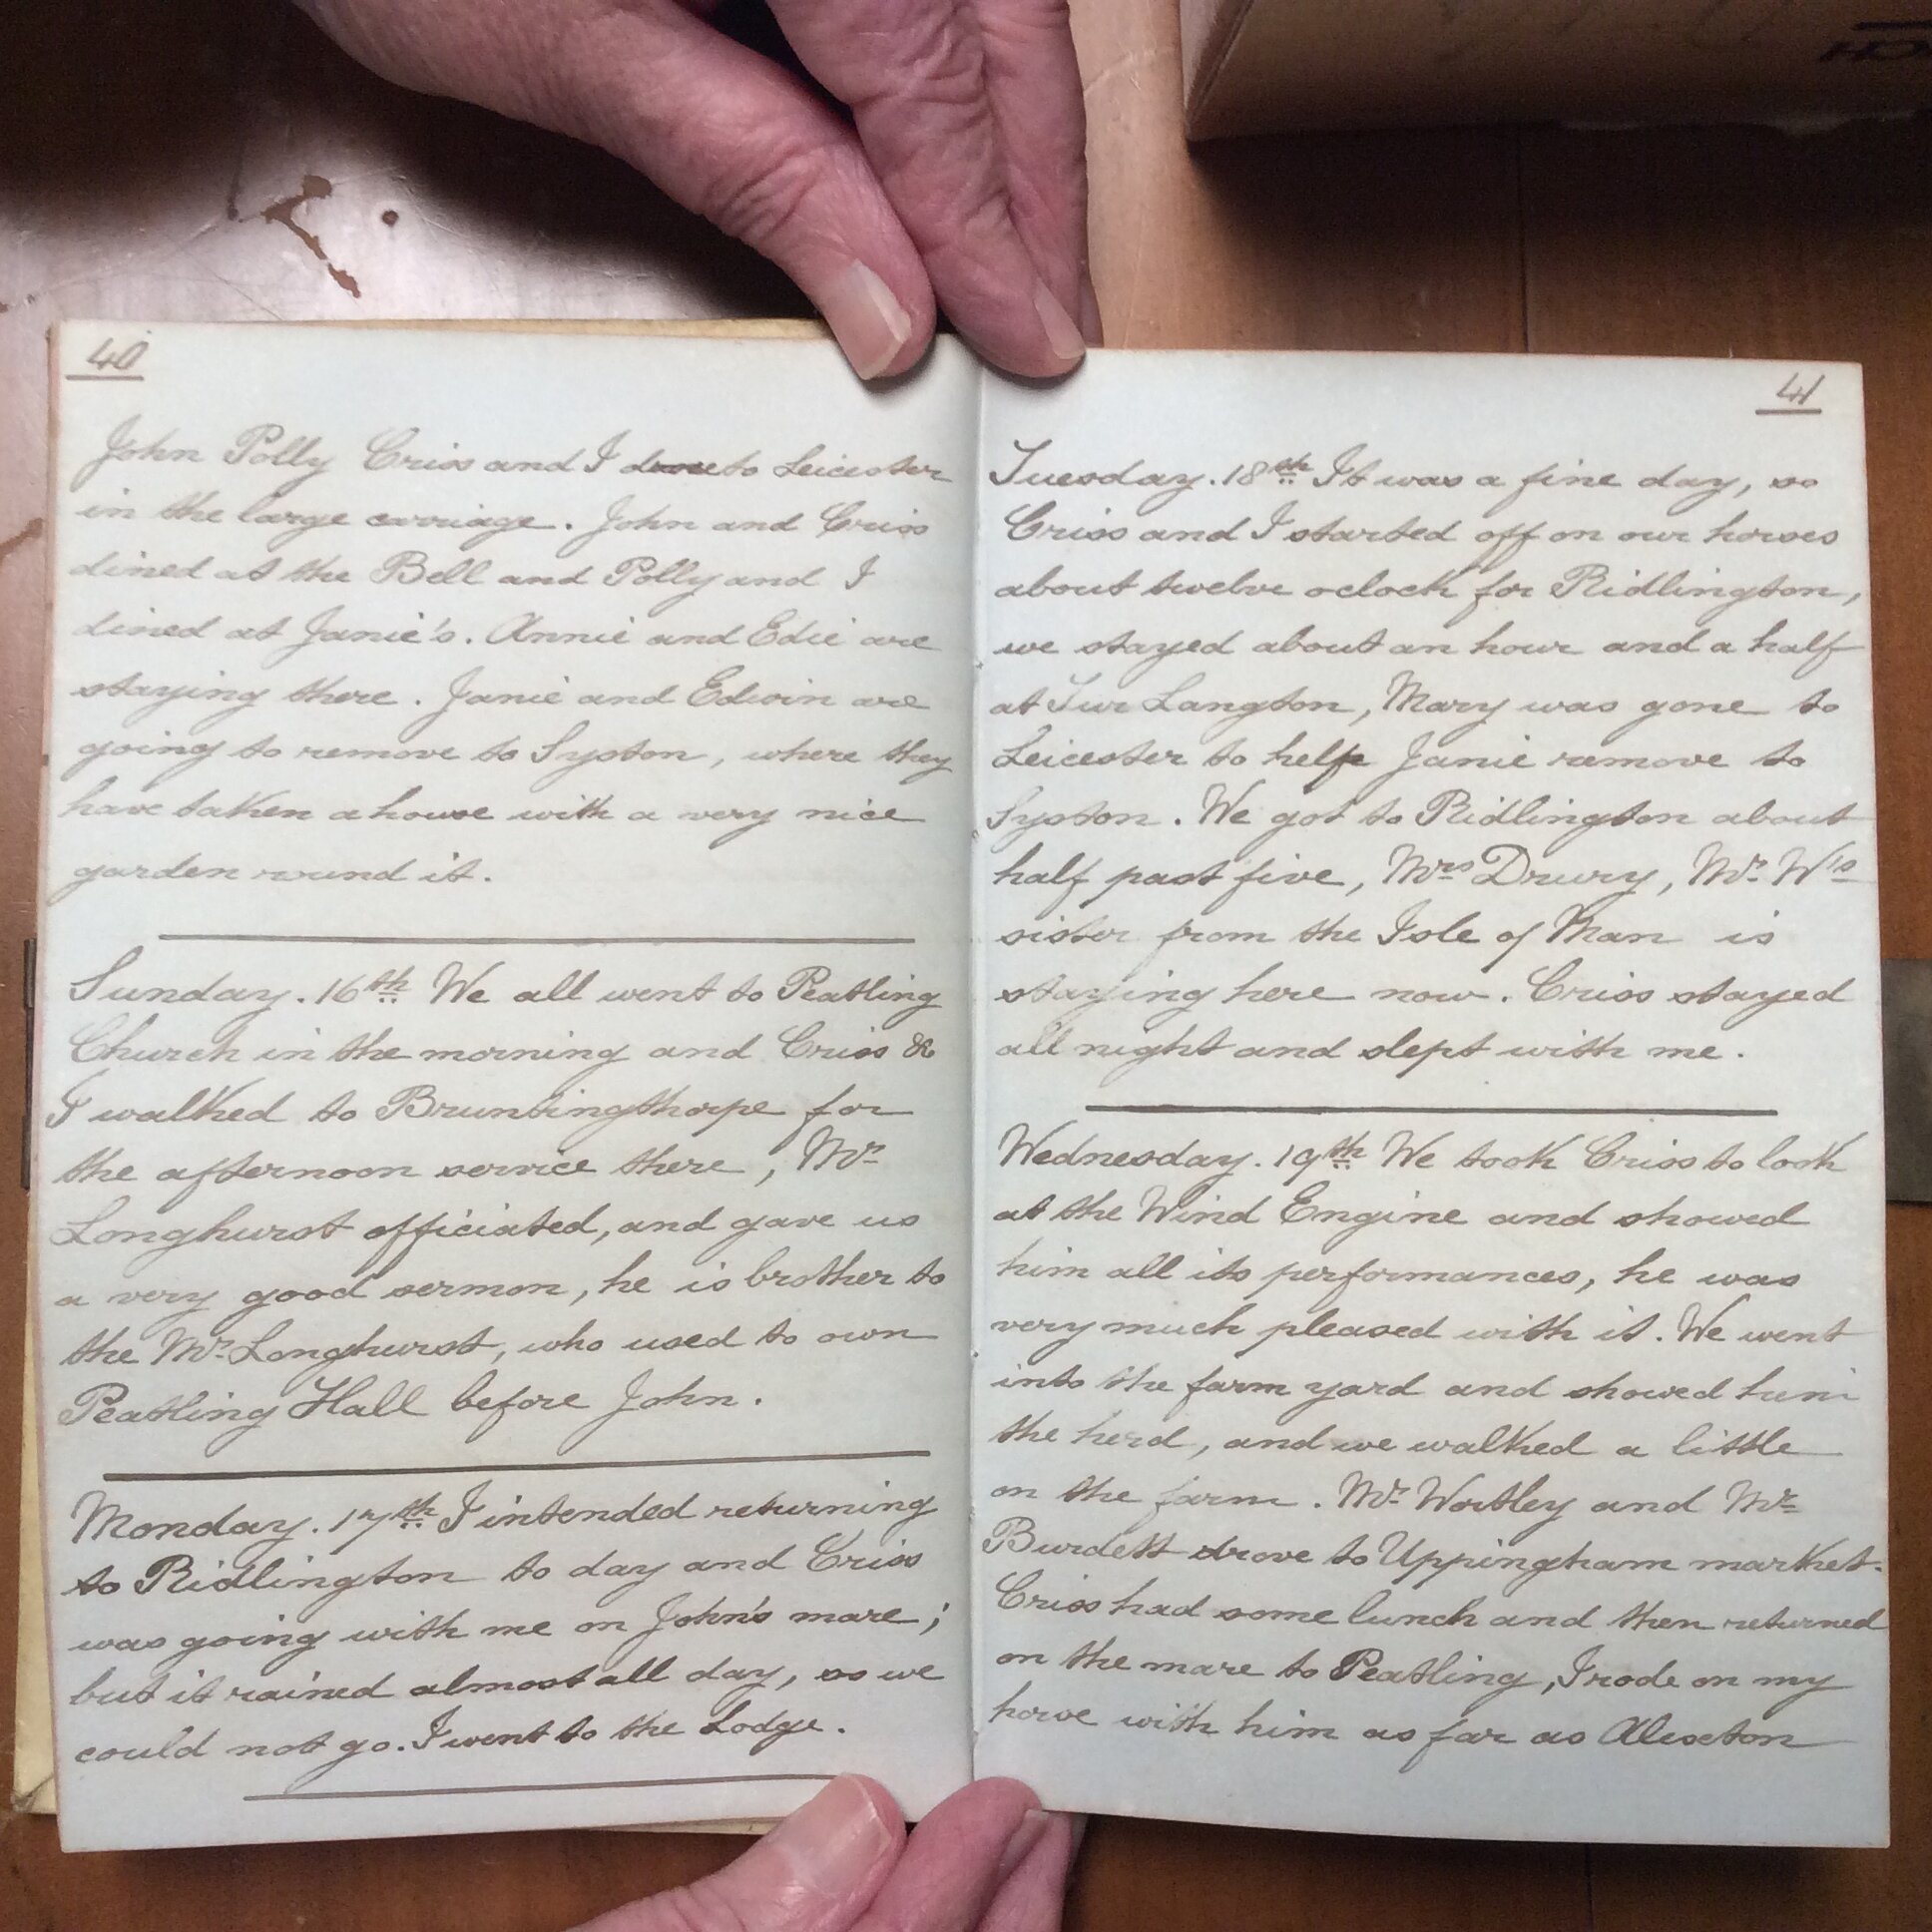 40
John Polly Criss and I drove to Leicester
in the large carriage. John and Criss
dined at the Bell and Polly and I
dined at Janie's. Annie and Edie are
staying there. Janie and Edwin are
going to remove to Syston, where they
have taken a house with a very nice
garden round it.
Sunday. 16th We all went to Peatling
Church in the morning and Criss &
I walked to Bruntingthorpe for
the afternoon service there, Mr
Longhurst officiated, and gave us
a very good sermon, he is brother to
the Mr Longhurst, who used to own
Peatling Hall before John.
Monday. 17th I intended returning
to Ridlington to day and Criss
was going with me on John's mare;
but it rained almost all day, so we
could not go. I went to the Lodge.
41
Tuesday. 18th It was a fine day, so
Criss and I started off on our horses
about twelve oclock for Ridlington,
we stayed about an hour and a half
at Tur Langton, Mary was gone to
Leicester to help Janie remove to
Syston. We got to Ridlington about
half past five, Mrs Drury, Mr W's
sister from the Isle of Man is
staying here now. Criss stayed
all night and slept with me.
Wednesday. 19th We took Criss to look
at the Wind Engine and showed
him all its performances, he was
very much pleased with it. We went
into the farm yard and showed him
the herd, and we walked a little
on the farm. Mr Wortley and Mr
Burdett drove to Uppingham market.
Criss had some lunch and then returned
on the mare to Peatling, I rode on my
horse with him as far as Alexton